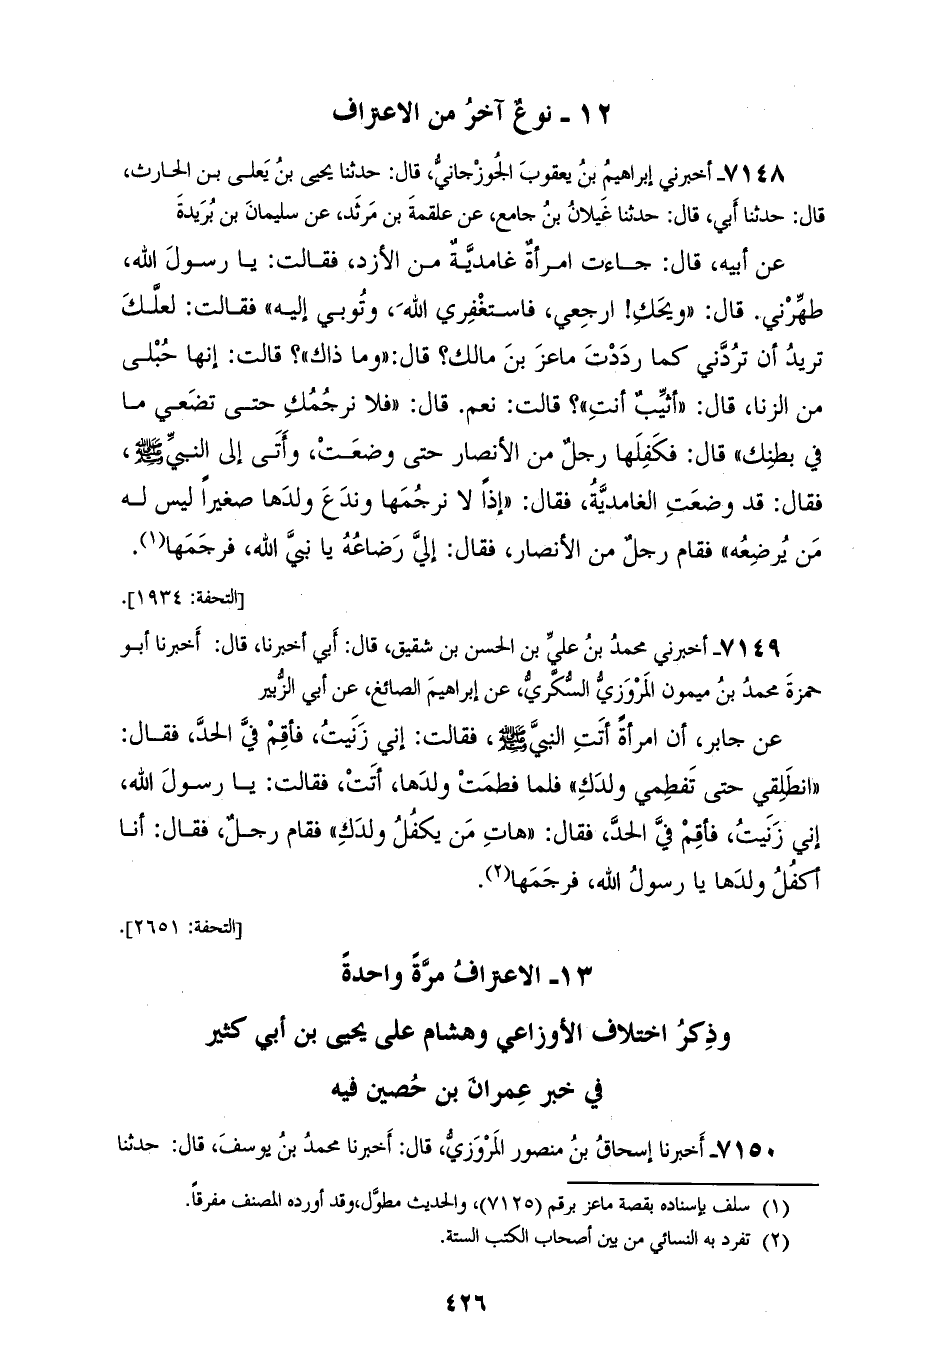 ١٢ ـ نوعٌ آخرُ من الاعتراف
٧١٤٨ـ أخبرني إبراهيمُ بنُ يعقوبَ الجُوزْجانيُّ، قال: حدثنا يحيى بنُ يَعلى بن الحارث،
قال: حدثنا أَبي، قال: حدثنا غَيلانُ بنُ جامع، عن علقمةَ بن مَرثَد، عن سليمانَ بن بُرَيدةَ
عن أبيه، قال: جاءت امرأةٌ غامديَّةٌ من الأزد، فقالت: يا رسولَ الله،
طهِّرْني. قال: «ويحَكِ! ارجعي، فاستغْفِري اللهَ، وتُوبي إليه» فقالت: لعلَّكَ
تريدُ أن تَرُدَّني كما ردَدْتَ ماعزَ بنَ مالك؟ قال:«وما ذاك»؟ قالت: إنها حُبْلى
من الزنا، قال: «أَثيِّبٌ أنتِ»؟ قالت: نعم. قال: «فلا نرجُمُكِ حتى تضَعي ما
في بطنِك» قال: فكَفِلَها رجلٌ من الأنصار حتى وضعَتْ، وأَتَى إلى النبيِّ ﷺ،
فقال: قد وضعَتِ الغامديَّةُ، فقال: «إذاً لا نرجُمَها وندَعَ ولدَها صغيراً ليس له
مَن يُرضِعُه» فقام رجلٌ من الأنصار، فقال: إليَّ رَضاعُهُ يا نبيَّ الله، فرجَمَها(١).
[التحفة: ١٩٣٤].
٧١٤٩ـ أخبرني محمدُ بنُ عليِّ بن الحسن بن شقيق، قال: أَبي أخبرنا، قال: أَخبرنا أبو
حمزةَ محمدُ بنُ ميمون المَرْوَزيُّ السُّكَّريُّ، عن إبراهيمَ الصائغ، عن أبي الزُّبير
عن جابر، أن امرأةً أتَتِ النبيَّ ﷺ، فقالت: إني زَنَيتُ، فأقِمْ فيَّ الحدَّ، فقال:
«انطَلِقي حتى تَفطِمي ولدَكِ» فلما فطمَتْ ولدَها، أتَتْ، فقالت: يا رسولَ الله،
إني زَنَيتُ، فأقِمْ فيَّ الحدَّ، فقال: «هاتِ مَن يكفُلُ ولدَكِ» فقام رجلٌ، فقال: أنا
أكفُلُ ولدَها يا رسولُ الله، فرجَمَها(٢).
[التحفة: ٢٦٥١].
١٣ـ الاعترافُ مرَّةً واحدةً
وذِكرُ اختلاف الأوزاعي وهشام على يحيى بن أبي كثير
في خبر عِمرانَ بن حُصين فيه
٧١٥٠ـ أَخبرنا إسحاقُ بنُ منصور المَرْوَزيُّ، قال: أَخبرنا محمدُ بنُ يوسفَ، قال: حدثنا
(١) سلف بإسناده بقصة ماعز برقم (٧١٢٥)، والحديث مطوَّل،وقد أورده المصنف مفرقاً.
(٢) تفرد به النسائي من بين أصحاب الكتب الستة.
٤٢٦